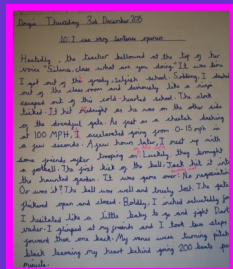 Thursday 3rd December 2015
LO: I can vary sentence openers
Heatedly, the teacher bellowed at the top of her
voice "Selena, class what are you doing" It was time
I got out of this grotty, selfish school. Suddenly, I dashed
out of the class room and demurely like a ninja
escaped out of this cold-hearted school. The clock
ticked. It hit Midnight as he was on the other side
of the dreadful gate. As fast as a cheetah dashing
at 100 MPH, I accelerated going from 0-15 mph in
a few seconds. A few hours later I met up with
some friends Luckily they brought
a football. The first kick of the ball Jack hit it into
the haunted garden. It was game over. No negotiation
Or was it? The ball was well and truly lost. The gate
flickered open and closed. Boldly, I invited
I hesitated like a little baby to go and fight Dart
vader. I glimpsed at my friends and I took two steps
forward then one back. My veins were turning pitch
black leaving my heart behind going 200 beats per
minute.